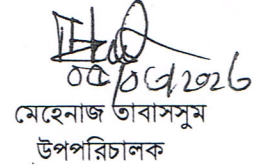 ০৫/০৩/২০২৬
মেহেনাজ তাবাসসুম
উপপরিচালক